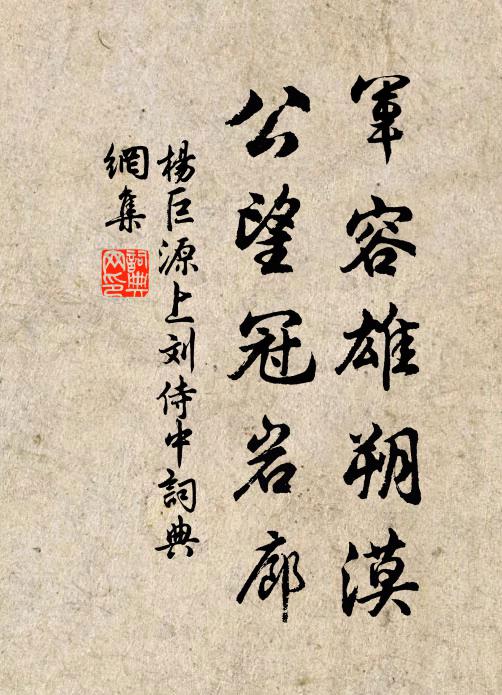 軍容雄朔漠
公望冠岩廊
楊巨源上刘侍中詞典
網集
詞典
网印